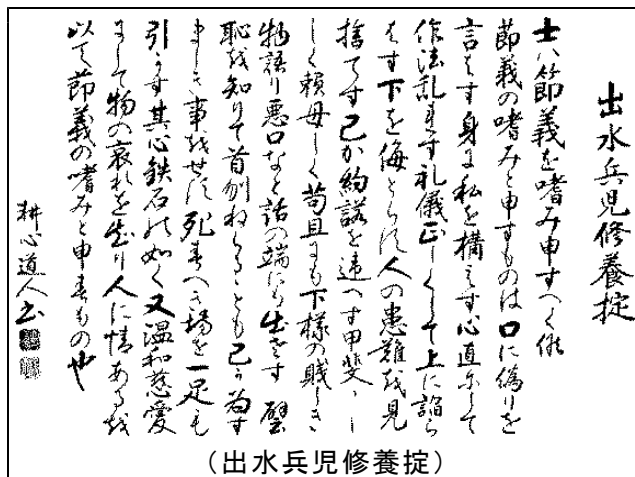 出水兵児修養掟
士ハ節義を嗜み申すへく候
節義の嗜みと申すものは口に偽りを
言はす身に私を構えす心直にして
作法乱れす礼儀正しくして上に諂ら
はす下を侮とらす人の患難を見
捨てす己か約諾を違へす甲斐〱
しく頼母しく苟且にも下様の賤しき
物語り悪口なと話の端にも出さす譬
恥を知りて首刎ねらるゝとも己か為す
ましき事をせす死すへき場を一足も
引かす其心鉄石の如く又温和慈愛
にして物の哀れを知り人に情あるを
以て節義の嗜みと申すもの也
耕心道人書
(出水兵児修養掟)